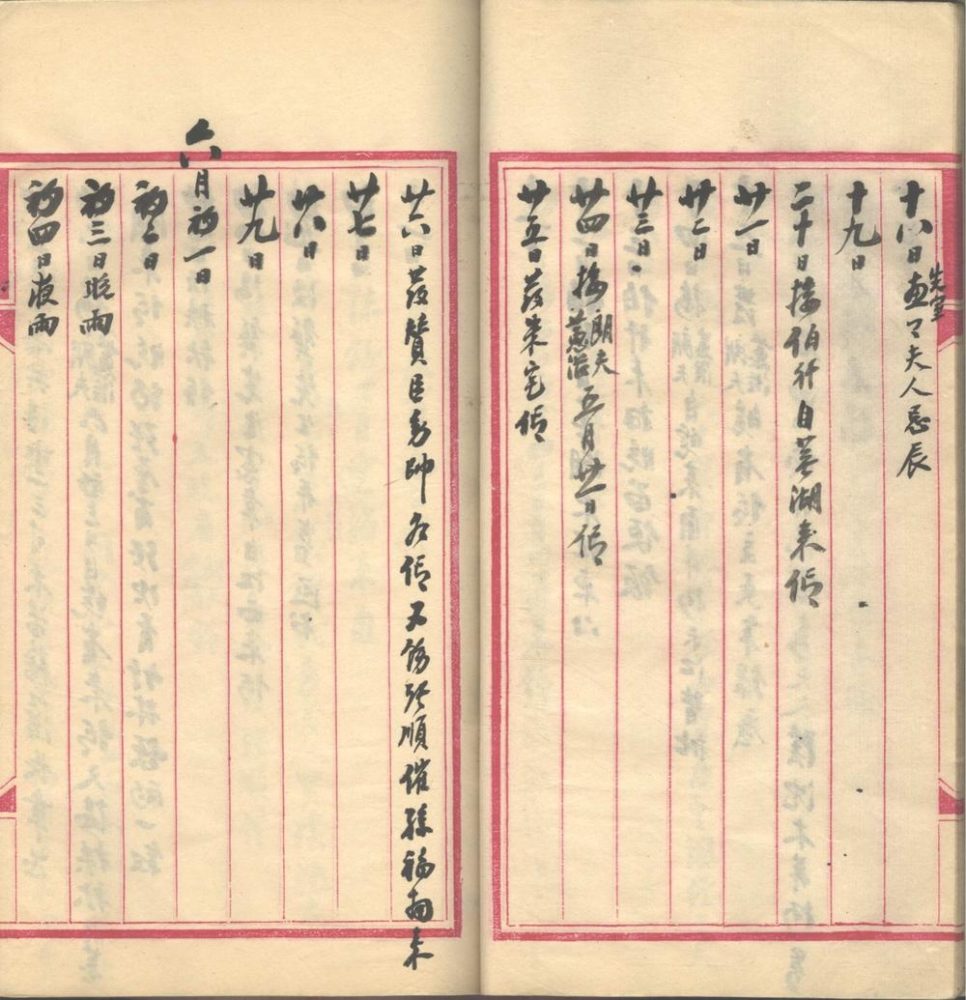 十八日先室夫人忌辰
十九日
二十日接伯行自蕪湖來信
廿一日
廿二日
廿三日
廿四日接朗夫蕙治五月廿一日信
廿五日發朱宅信
廿六日發贊臣帥信又飭張順催孫福南來
廿七日
廿八日
廿九日
六月初一日
初二日
初三日晚雨
初四日夜雨